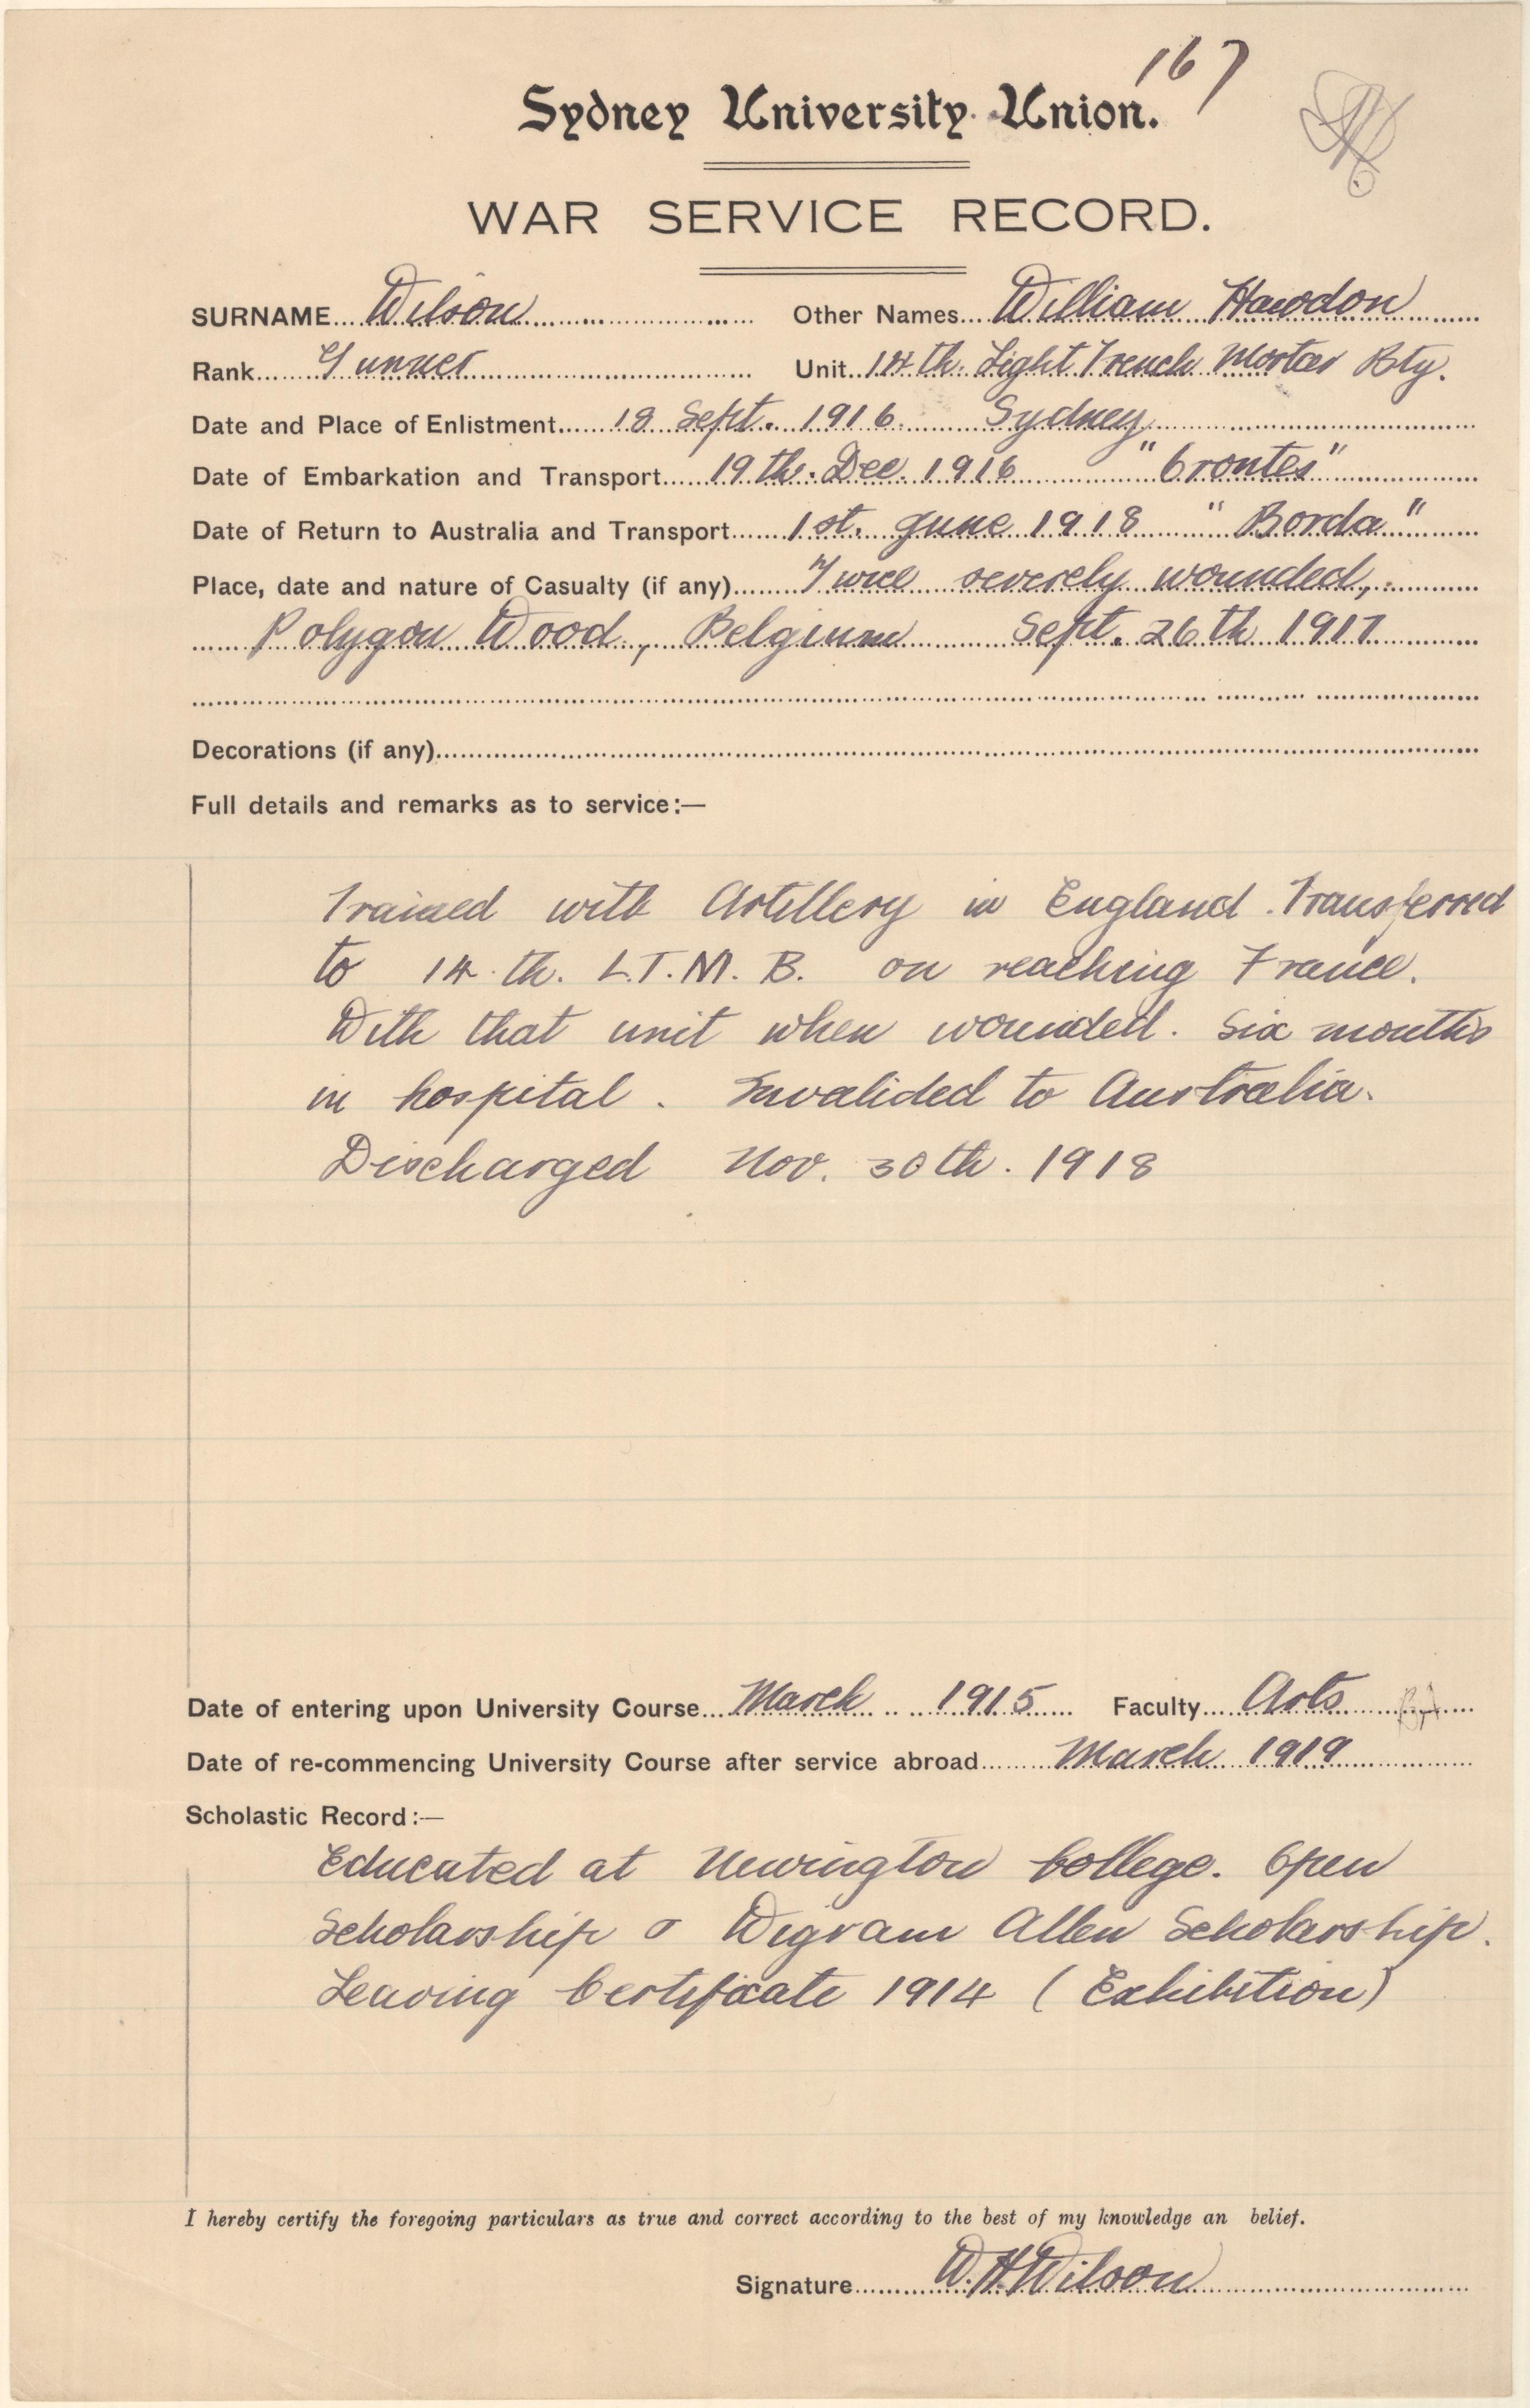 167
Sydney University Union.
WAR SERVICE RECORD.
SURNAME... Wilson Other Names... William Hawdon
Rank... Gunner Unit... 14th. Light Trench Mortar Bty.
Date and Place of Enlistment... 18 Sept. 1916. Sydney
Date of Embarkation and Transport... 19th. Dec. 1916 "Orontes"
Date of Return to Australia and Transport... 1st. June 1918 "Borda"
Place, date and nature of Casualty (if any)... Twice severely wounded,
Polygon Wood, Belgium Sept. 26th 1917
Decorations (if any)
Full details and remarks as to service:—
Trained with Artillery in England. Transferred
to 14.th. L.T.M.B. on reaching France.
With that unit when wounded. Six months
in hospital. Invalided to Australia.
Discharged Nov. 30th. 1918
Date of entering upon University Course... March 1915 Faculty... Arts
Date of re-commencing University Course after service abroad... March 1919
Scholastic Record:—
Educated at Newington College. Open
Scholarship & Wigram Allen Scholarship.
Leaving Certificate 1914 (Exhibition)
I hereby certify the foregoing particulars as true and correct according to the best of my knowledge an belief.
Signature... W. H. Wilson